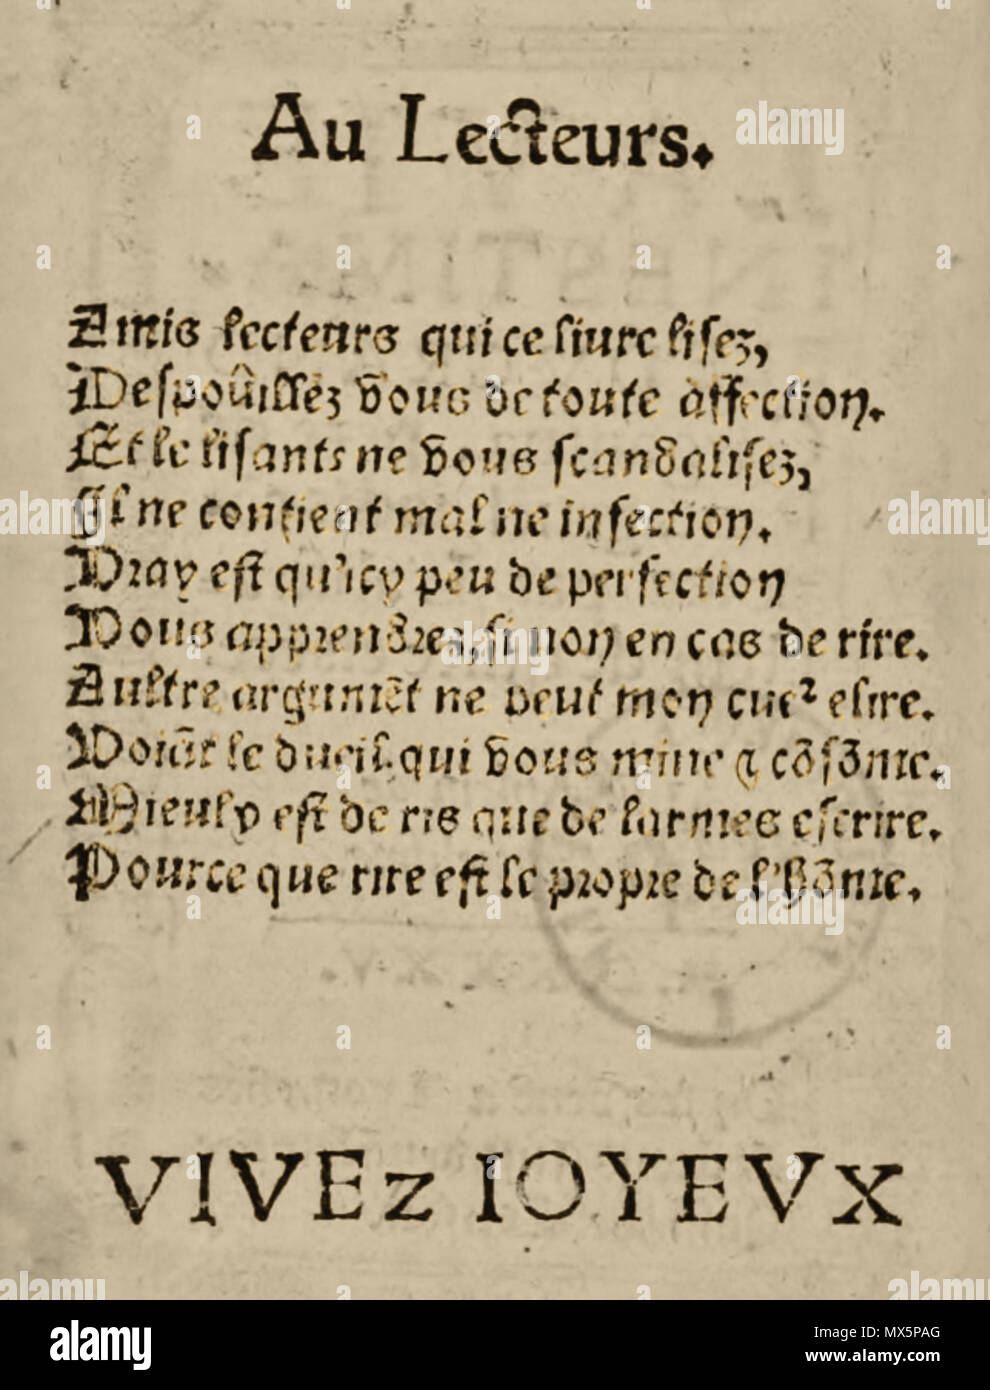 Au Lecteurs.
Amis lecteurs qui ce liure lisez,
Despouillez vous de toute affection.
Et le lisants ne vous scandalisez,
Il ne contient mal ne infection.
Vray est qu'icy peu de perfection
Vous apprendrez, si non en cas de rire.
Aultre argumēt ne peut mon cueꝛ elire.
Voiāt le dueil. qui vous mine ⁊ cōsōme.
Mieulx est de ris que de larmes escrire.
Pource que rire est le propre de l'hōme.
VIVEz IOYEVX
alamy
Image ID: MX5PAG
www.alamy.com